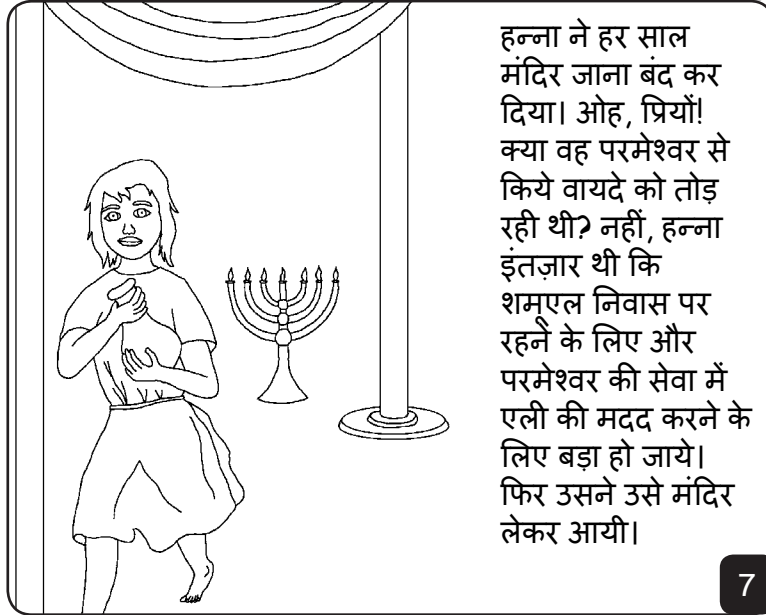 हन्ना ने हर साल
मंदिर जाना बंद कर
दिया। ओह, प्रियों!
क्या वह परमेश्वर से
किये वायदे को तोड़
रही थी? नहीं, हन्ना
इंतज़ार थी कि
शमूएल निवास पर
रहने के लिए और
परमेश्वर की सेवा में
एली की मदद करने के
लिए बड़ा हो जाये।
फिर उसने उसे मंदिर
लेकर आयी।
7